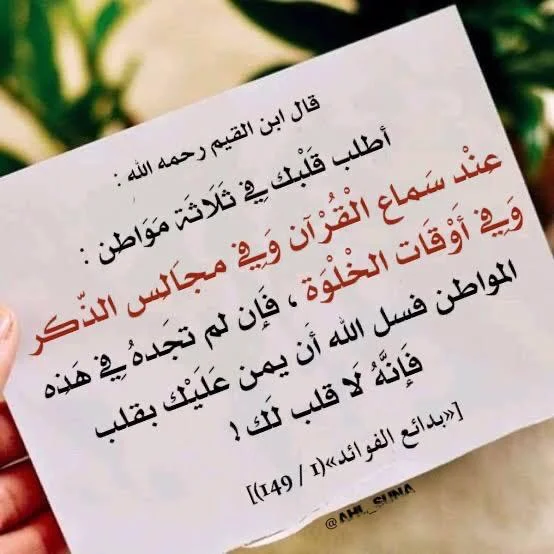 قال ابن القيم رحمه الله :
أطلب قَلْبك فِي ثَلَاثَة مَوَاطن :
عِنْد سَماع الْقُرْآن وَفِي مجَالس الذّكر
وَفِي أَوْقَات الخْلْوَة ، فَإِن لم تجَدهُ فِي هَذه
المواطن فسل الله أَن يمن عَلَيْك بقلب
فَإِنَّهُ لَا قلب لَك !
[«بدائع الفوائد»(١ / ١٤٩)]
@AHL_SUNA